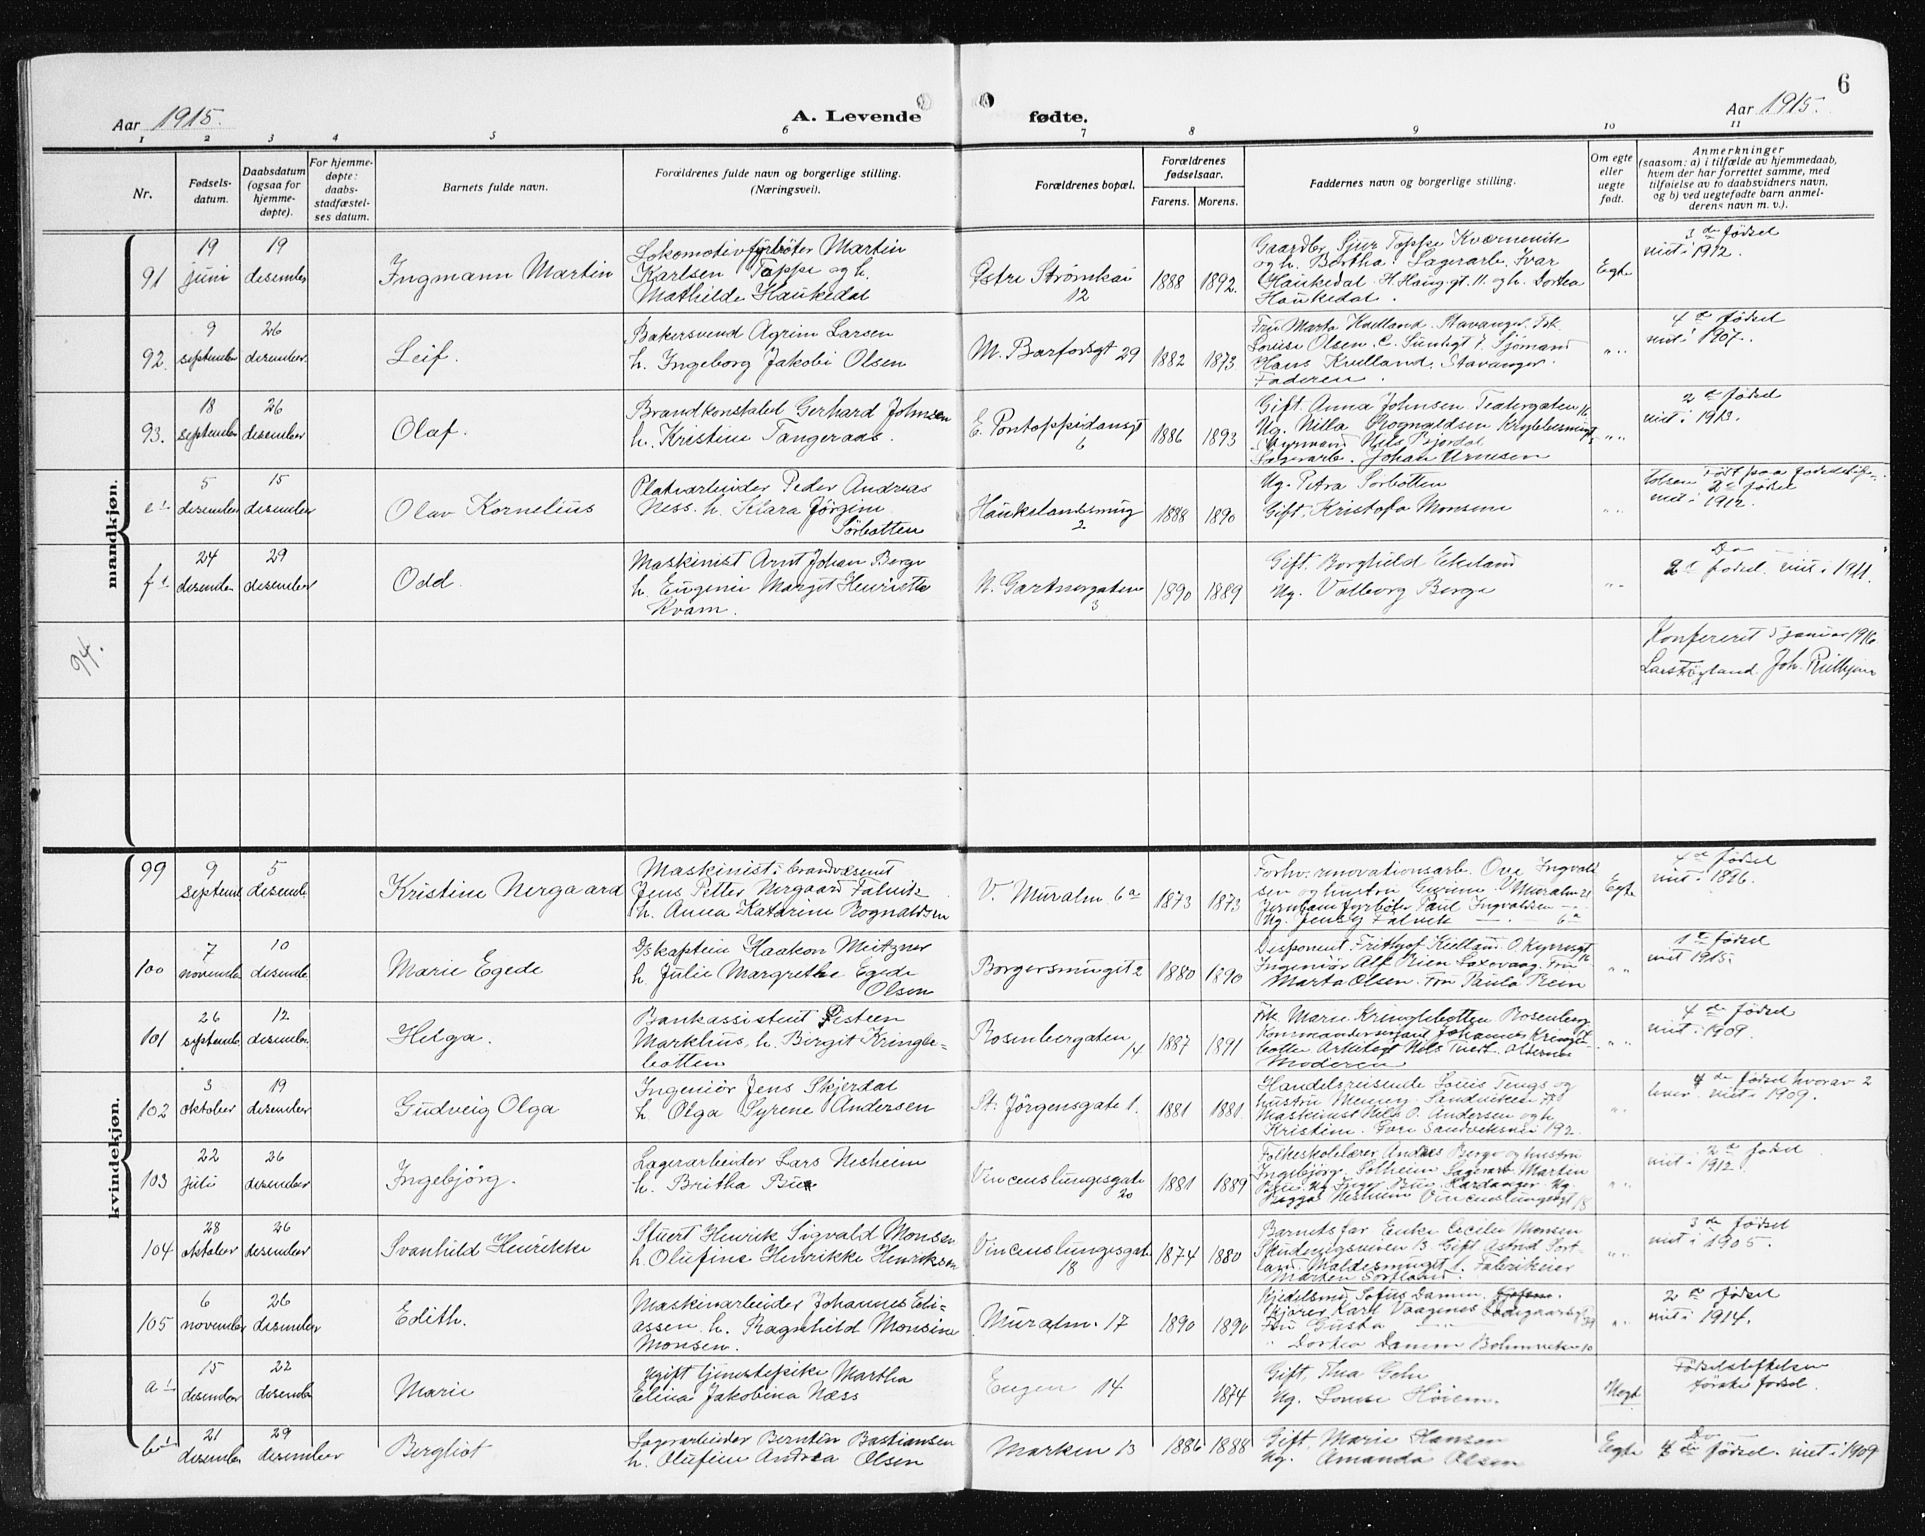 6
Aar 1915.
A. Levende
fødte.
Aar 1915.
1 2 3 4 5 6 7 8 9 10 11
Nr.
Fødsels-
datum.
Daabsdatum
(ogsaa for
hjemme-
døpte).
For hjemme-
døpte:
daabs-
stadfæstel-
ses datum.
Barnets fulde navn.
Forældrenes fulde navn og borgerlige stilling.
(Næringsvei).
Forældrenes bopæl.
Forældrenes
fødselsaar.
Farens. Morens.
Faddernes navn og borgerlig stilling.
Om egte
eller
uegte
født.
Anmerkninger
(saasom: a) i tilfælde av hjemmedaab,
hvem der har forrettet samme, med
tilføielse av to daabsvidners navn,
og b) ved uegtefødte barn anmel-
derens navn m. v.).
mandkjøn.
91
19
juni
19
desember
Ingmann Martin
Lokomotivfyrbøter Martin
Karlsen Toppe og h.
Mathilde Haukedal
Østre Strømkai
12
1888 1892
Gaardbr. Sjur Toppe Kværnevik
og h. Bertha. Lagerarb. Ivar
Haukedal. H. Haug.gt. 11. og h. Dortea
Haukedal.
Egte
3de fødsel
nist i 1912.
92.
9
september
26
desember
Leif.
Bakersvend Agrim Larsen
h. Ingeborg Jakobi Olsen
M. Barfordsgt 29
1882 1873
Fru Marta Kielland. Stavanger. Frk.
Louise Olsen. C. Sundtgt 7. Sjømand
Hans Kielland. Stavanger.
Faderen.
" "
4de fødsel
nist i 1907.
93.
18
september
26
desember
Olaf.
Brandkonstabel Gerhard Johnsen
h. Kristine Tangeraas.
E. Pontoppidansgt
6
1886 1893
Gift. Anna Johnsen. Teatergaten 16
Ug. Nilla Rognaldsen
Styrmand Nils Bjordal
Lagerarb. Johan Arnesen
" "
2de fødsel
nist i 1913.
e1
5
desember
15
desember
Olav Kornelius
Platearbeider Peder Andreas
Ness. h. Klara Jørgine
Sørbotten
Haukelandsmug
2
1888 1890
Ug. Petra Sørbotten
Gift. Kristofa Monsene
" "
født paa fødselshj.
2de fødsel
nist i 1912.
f1
24
desember
29
desember
Odd.
Maskinist Arnt Johan Berge
h. Eugenie Margit Henriette
Kvam.
N. Gartnergaten
3
1890 1889
Gift. Borghild Ekeland
Ug. Valborg Berge
" "
Do
2de fødsel nist i 1911.
94.
Konfereret 5 januar 1916
Lars Høyland. Joh.
kvindekjøn.
99
9
septemb
5
desembe
Kristine Nergaard
Maskinist i brandvæsenet
Jens Petter Nergaard Falvik
h. Anna Katarine Rognaldsen
V. Muralm. 6a
1873 1873
Forhv. renovationsarb. Ove Ingvald
sen og hustru Gurine V Muralm 21
Jernbanefyrbøter Paul Ingvaldsen — " —
Ug. Jenny Falvik — " — 6a
Egte
4de fødsel
nist i 1896.
100
7
november
10
desembe
Marie Egede
D/Skaptein Haakon Meitzner
h. Julie Margrethe Egede
Olsen
Borgersmuget 2
1880 1890
Disponent Frithjof Kielland. O. Kyrresgt 16
Ingeniør Alf Rien Laxevaag. Fru
Marta Olsen. Fru Paula Rein
" "
1de fødsel
nist 1915.
101
26
septembe
12
desember
Helga.
Bankassistent Peisteen
Marktius, h. Birgit Kringle-
botten
Rosenbergaten
14
1887 1891
Frk. Marie Kringlebotten Rosenberg
Kommandersersjant Johannes Kringle-
botten Arkitegt Nils Tvedt. Olsernes
Moderen
" "
4de fødsel
nist i 1909.
102
3
oktober
19
desember
Gudveig Olga
Ingeniør Jens Skjerdal
h. Olga Syrene Andersen
St. Jørgensgate 1.
1881 1881.
Handelsreisende Louis Tengs og
hustru Menny. Sandviksv 78
Maskinist Nils O. Andersen og h.
Kristine. Gora Sandviksvei 192.
"
4de fødsel hvorav 2
lever. nist i 1909.
103
22
juli
26
desember
Ingebjørg.
Lagerarbeider Lars Nesheim
h. Britha Bue
Vincenslungesgate
20
1881 1889
Folkeskolelærer Anders Berge og hustru
Ingebjørg. Solheim Lagerarb Martin
Bue. Ug Inger Bue Hardanger. Ug.
Bagga Nesheim Vincenslungesgt 18
" "
2de fødsel
nist i 1912.
104
28
oktober
26
desember
Svanhild Henrikke
Stuert Henrik Sigvald Monsen
h. Olufine Henrikke Henriksen
Vincenslungesgate
18
1874 1880
Barnets far Enke Cecilie Monsen
Skuteviksveien 13. Gift Astrid Sort-
land. Maldesmuget 1. Fabrikeier
Morten Sortland.
" "
3de fødsel
nist i 1905.
105
6
november
26
desember
Edith.
Maskinarbeider Johannes Eli-
assen. h. Ragnhild Monsine
Monsen.
Muralm. 17
1890 1890
Kjedelsmed Sofus Damm.
Kjører Karl Vaagenes Ladegaardsgt 39
Fru Gusta — " —
" Dortea Damm Bohmveien 10
" "
2de fødsel
nist i 1914.
a1
15
desember
22
desembe
Marie
Ugift tjenestepike Martha
Elina Jakobina Næss
Engen 14
1874
Gift. Thea Gehr
Ug. Louise Høiem.
Uegt
Fødselsstiftelsen
første fødsel.
b1
21
desember
29
desember
Bergliot
Lagerarbeider Berntin Bastiansen
h. Olufine Andrea Olsen
Marken 13
1886 1888
Gift. Marie Hansen
Ug. Amanda Olsen
Egte
Do
4de fødsel. nist i 1909